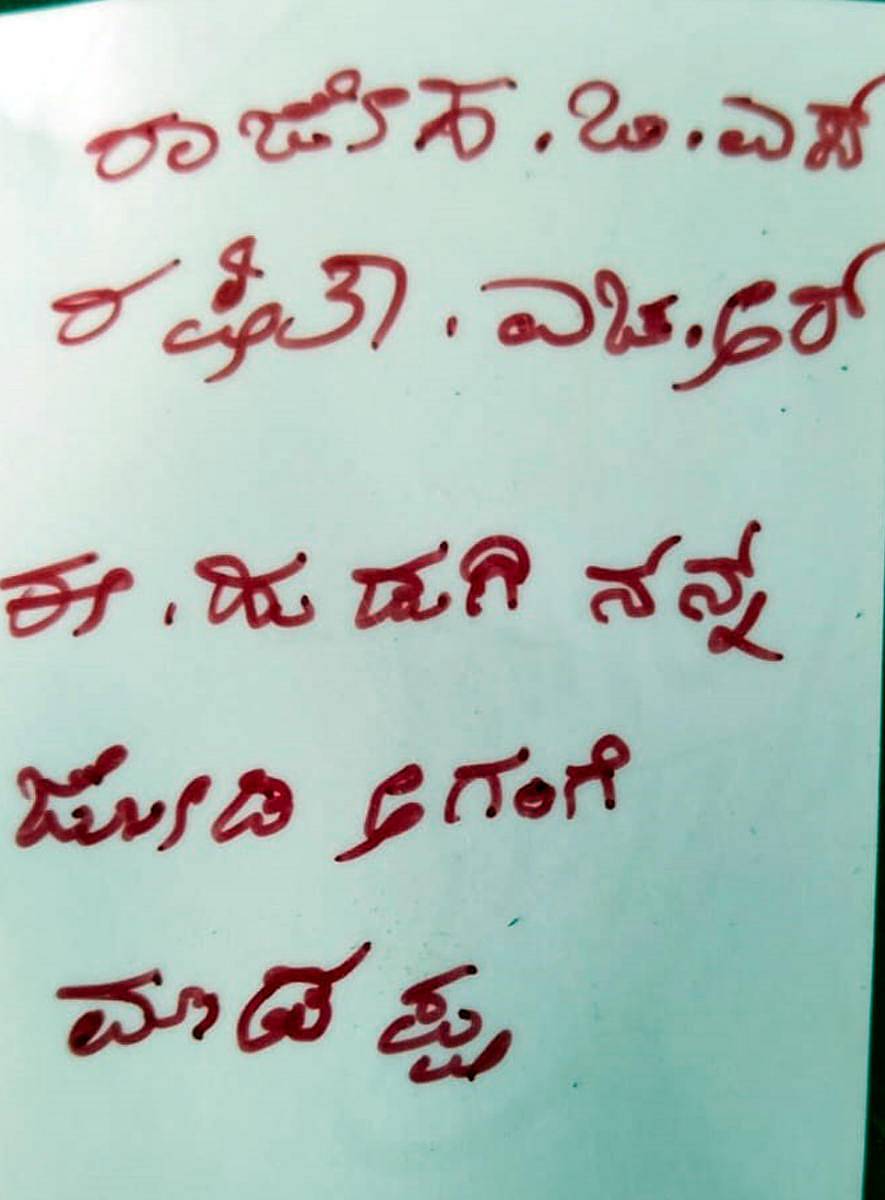 ರಾಜೇಶ.ಬಿ.ಎಸ್
ರಷಿತಾ.ಎಚ.ಆರ್
ಈ.ಹುಡುಗಿ ನನ್ನ
ಜೋಡಿ ಆಗಂಗೆ
ಮಾಡಪ್ಪ